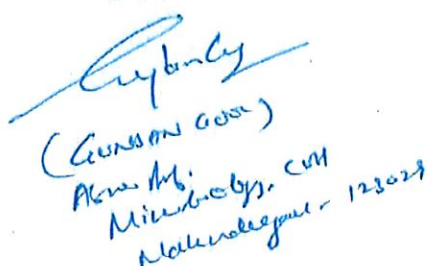 (GUNJAN GOEL)
Assoc. Prof.
Microbiology, CUH
Mahendergarh - 123029